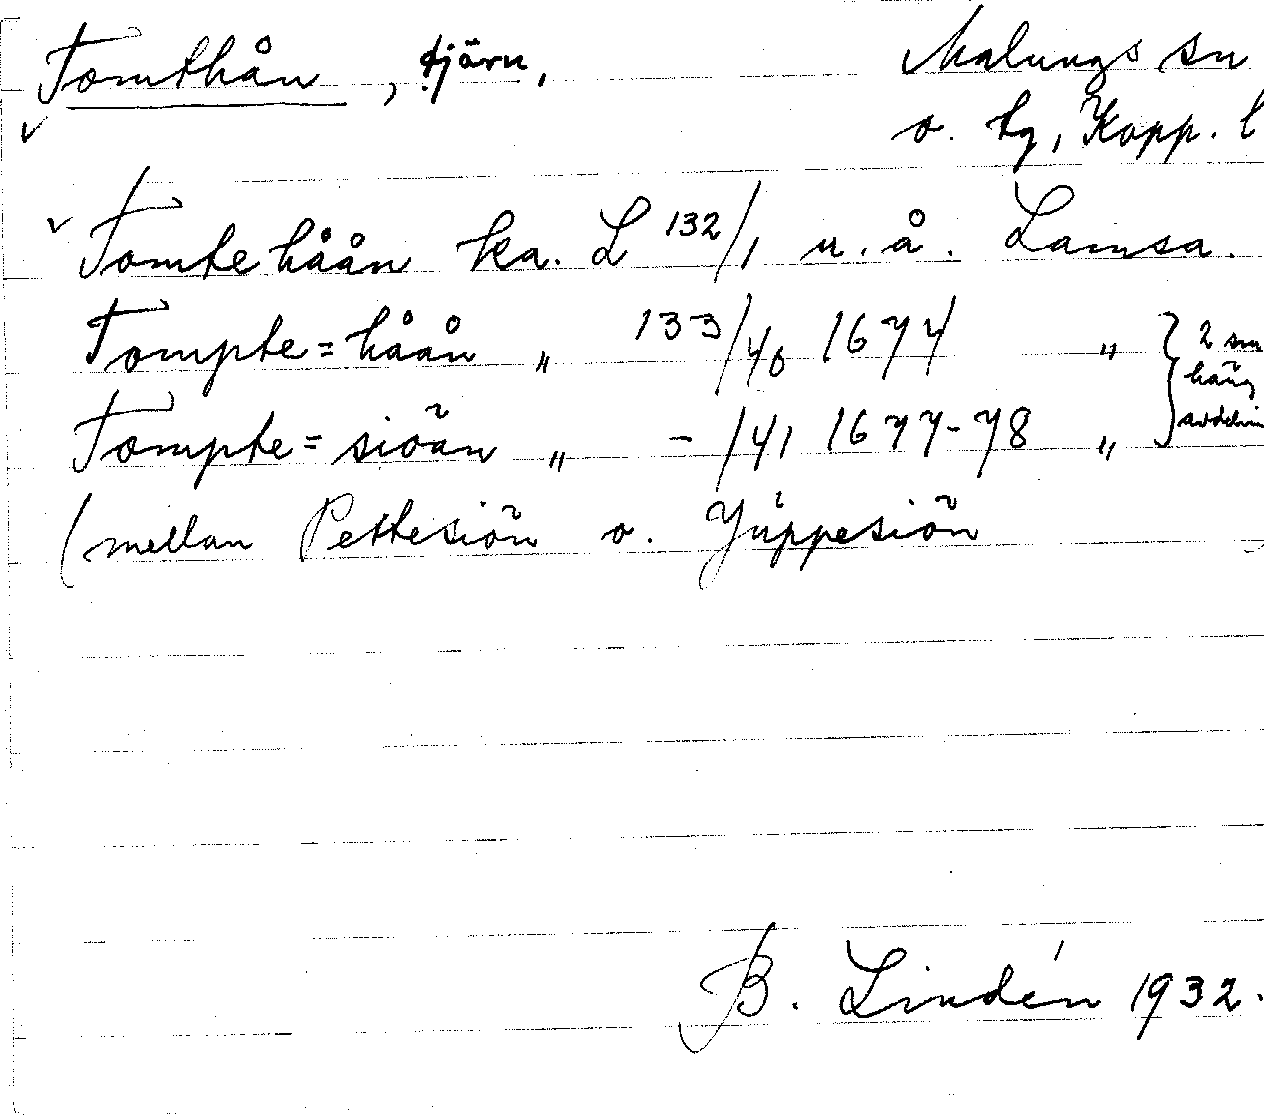 Tomthån, tjärn, Malungs sn
o. tg, Kopp. l
Tomtehåån ka. L 132/1 u. å. Lamsa.
Tompte=håån „ 133/40 1677 „ } 2 sm
häng
Tompte=siöän „ – /41 1677-78 „
(mellan Pettesiön o. Yüppesiön
B. Lindén 1932.